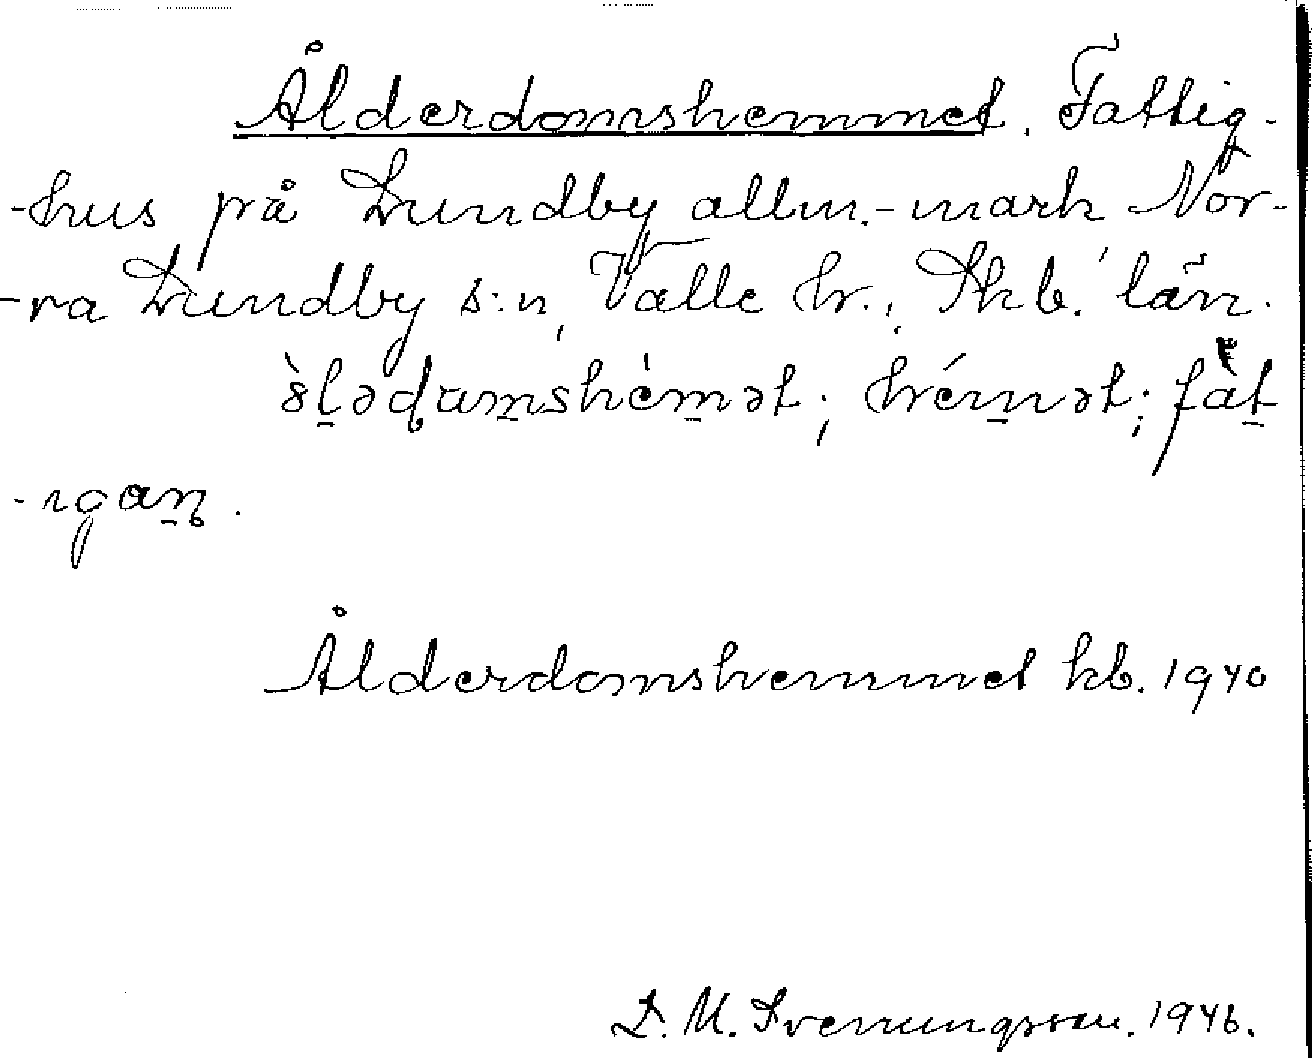 Ålderdomshemmet. Fattig-
-hus på Lundby allm.-mark Nor-
-ra Lundby s:n, Valle hr., Skb. län.
hémət; fàt
-ıgan.
Ålderdomshemmet kb. 1940
D. M. Svenungsson. 1946.